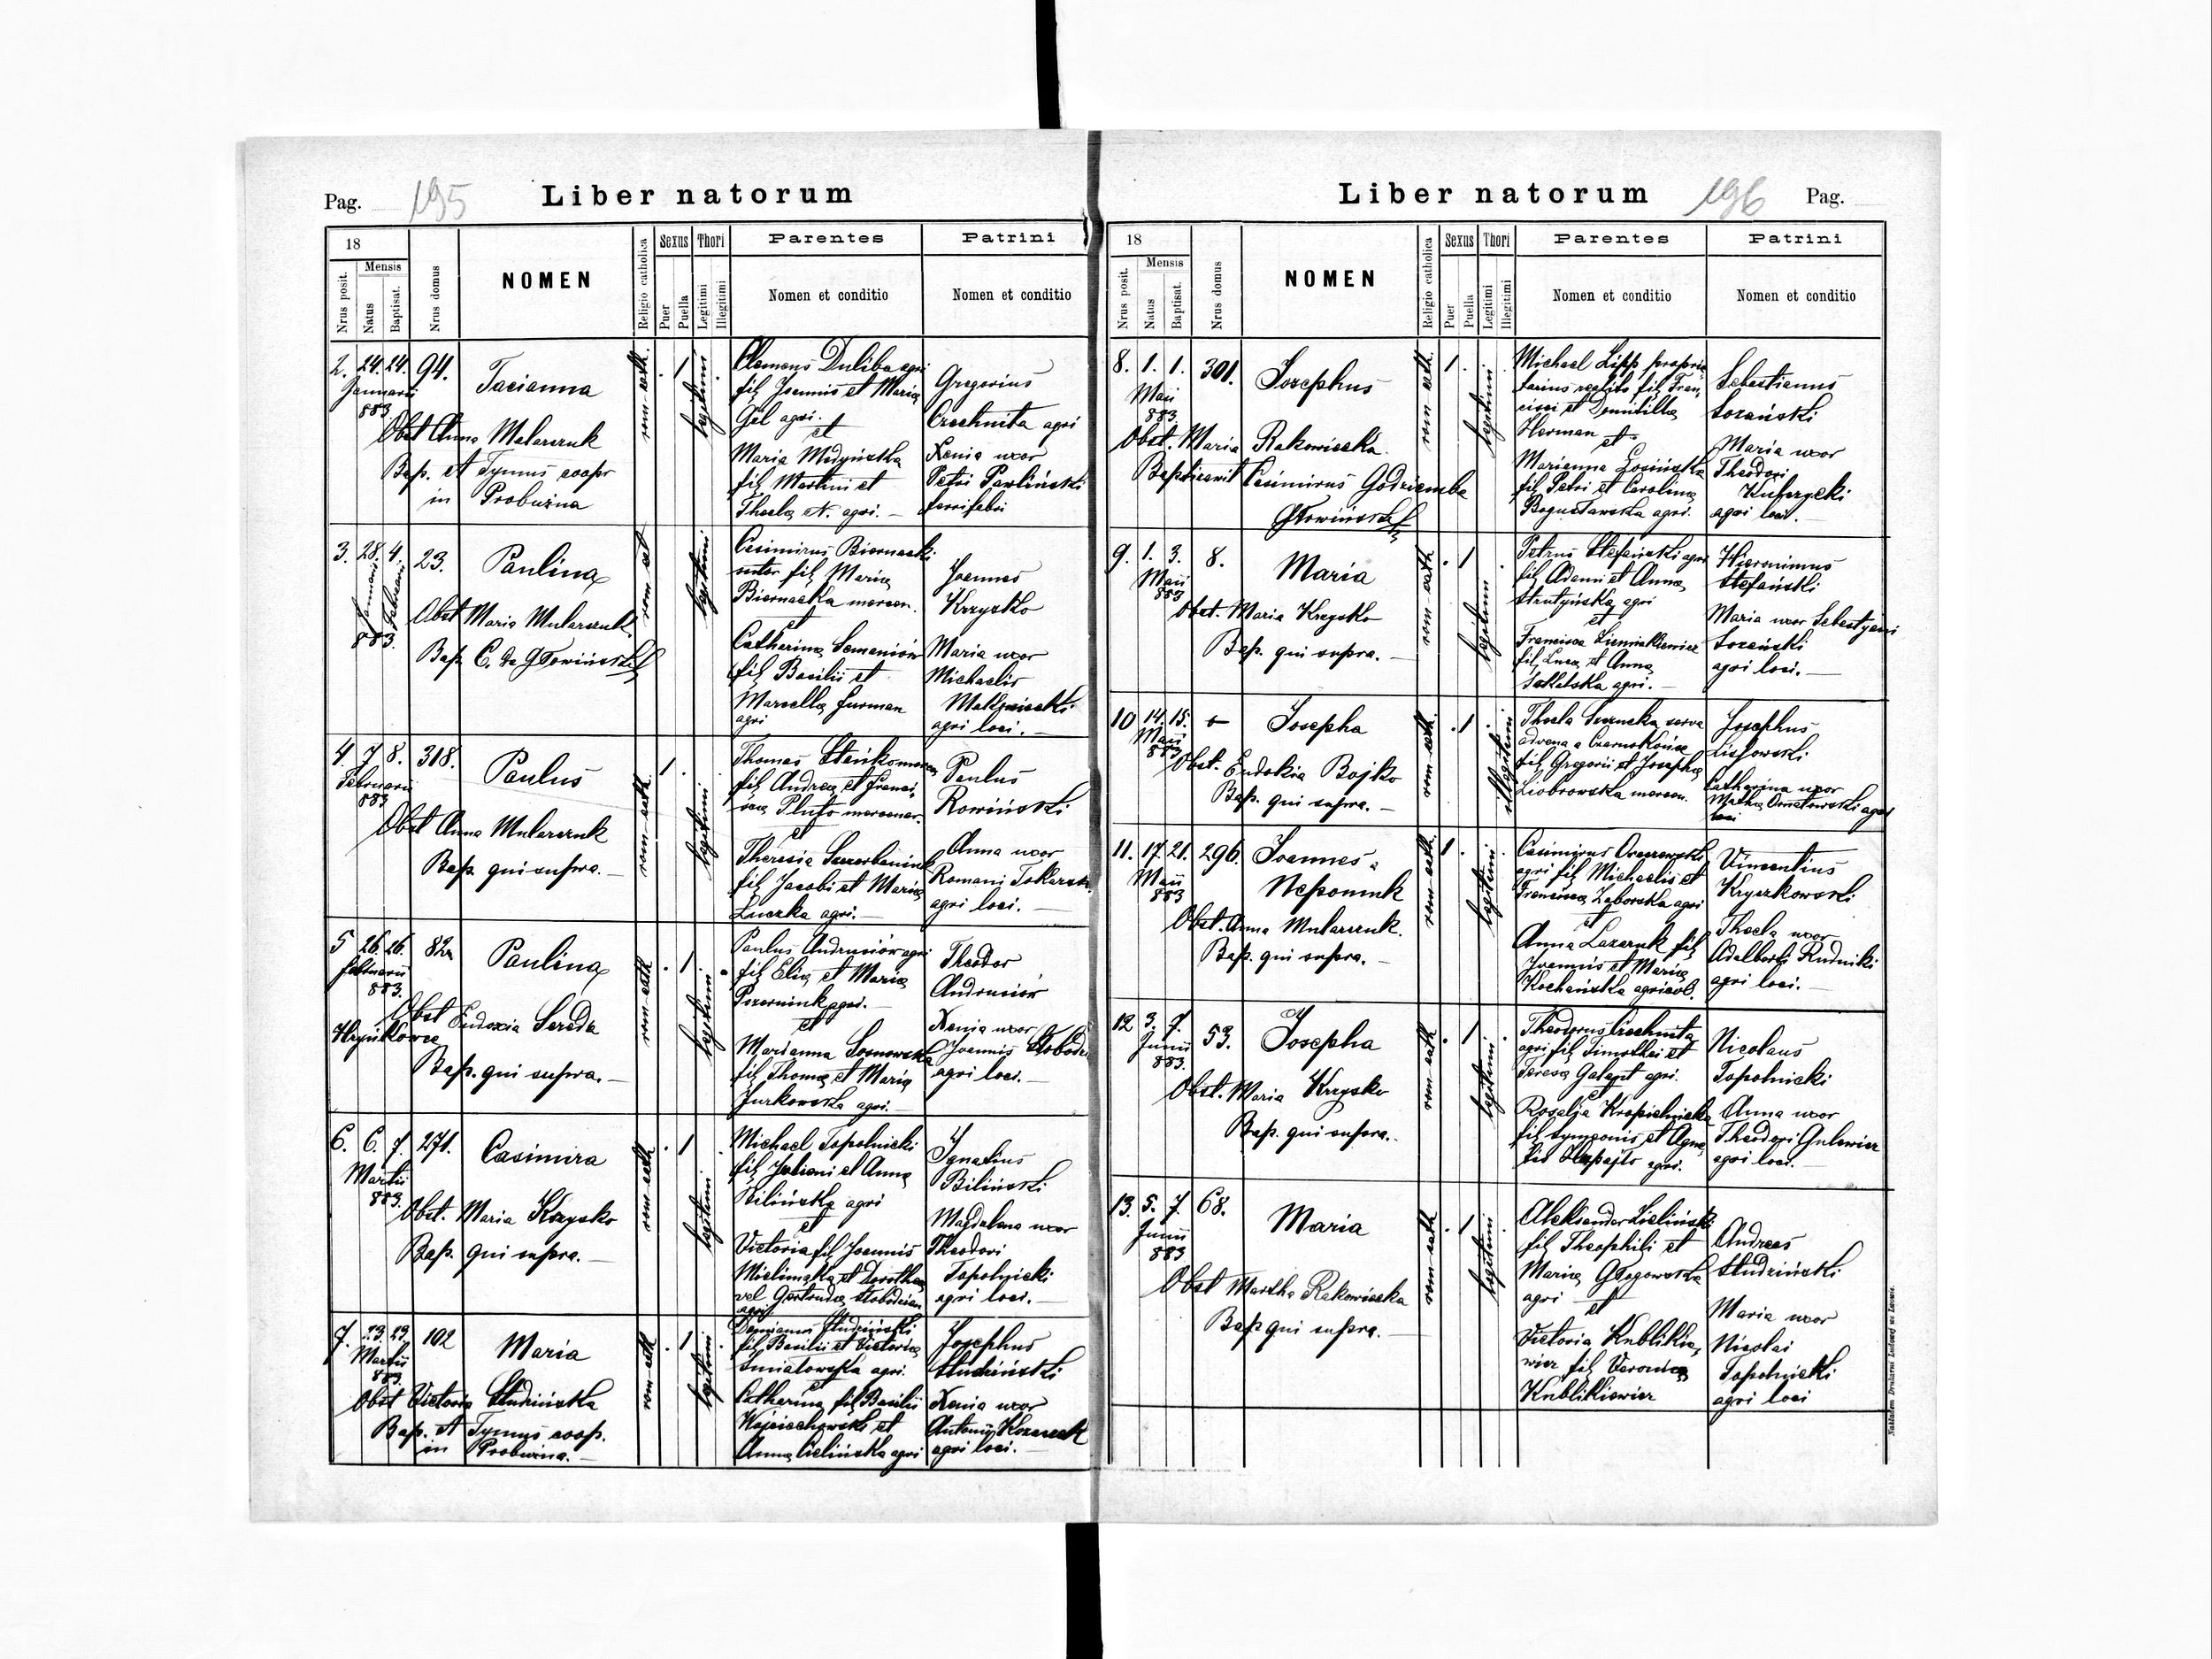 Pag. 195 Liber natorum
18
Nrus posit.
Mensis
Natus
Baptisat.
Nrus domus
NOMEN
Religio catholica
Sexus
Puer
Puella
Thori
Legitimi
Illegitimi
Parentes
Nomen et conditio
Patrini
Nomen et conditio
2. 24. 24. 94.
Januarii
883
Tacianna
Obst Anna Mularczuk
Bap. et Tymus coopr
in Probużna
rom-cath.
1
legitimi
Clemens Duliba agri
fil Joannis et Maria
Gil agri.
et
Maria Medyńska
fil Martini et
Thecla N. agri.
Gregorius
Czechnita agri
Xenia uxor
Petri Pawliński
ferrifabri
3. 28. 4. 23.
Januarii
Februarii
883.
Paulina
Obst Maria Mularczuk
Bap. C. de Głowiński
rom cat
legitimi
Casimirus Biernacki
sutor fil Maria
Biernacka mercen.
et
Catharina Semeniów
fil Basilii et
Marcella Furman
agri
Joannes
Krzyszko
Maria uxor
Michaelis
agri loci.
4. 7 8. 318.
Februarii
883
Paulus
Obst Anna Mularczuk
Bap. qui supra.
rom-cath.
1
legitimi
Thomas Steńko
fil Andrea et Franci-
sca Pluto mercenar.
et
Theresia
fil Jacobi et Maria
Luczka agri.
Paulus
Rowiński
Anna uxor
Romani
agri loci.
5 26. 26. 82
Februarii
883.
Paulina
Obst Eudoxia Sereda
Hryńkowce
Bap. qui supra.
rom-cath
1
legitimi
Paulus Andrusiów agri
fil Elia et Maria
agri.
et
Marianna Sosnowska
fil Thoma et Maria
Jurkowska agri.
Theodor
Andrusiów
Xenia uxor
Joannis
agri loci.
6. 6. 7. 271.
Martii
883.
Casimira
Obst. Maria Krzysko
Bap. qui supra.
rom-cath
1
legitimi
Michael Topolnicki
fil Juliani et Anna
Bilińska agri
et
Victoria fil Joannis
et Dorothea
vel Gertruda
agri
Ignatius
Biliński
Magdalena uxor
Theodori
Topolnicki
agri loci.
7. 23. 23. 102
Martii
883.
Maria
Obst Victoria Studzińska
Bap. et Tymus coop.
in Probużna.
rom-cath
1
legitimi
Damianus Studziński
fil Basilii et Victoria
Śmiatowska agri.
et
Catharina fil Basilii
Wojciechowski et
Anna Cielińska agri
Josephus
Studziński
Xenia uxor
Antonii
agri loci.
Liber natorum 196 Pag.
18
Nrus posit.
Mensis
Natus
Baptisat.
Nrus domus
NOMEN
Religio catholica
Sexus
Puer
Puella
Thori
Legitimi
Illegitimi
Parentes
Nomen et conditio
Patrini
Nomen et conditio
8. 1. 1. 301.
Maii
883
Josephus
Obst. Maria Rakowiecka.
Baptizavit Casimirus Godziemba
Głowiński
rom-cath.
1
legitimi
Michael Lipp proprie-
tarius realit fil Fran-
cisci et Domitilla
Herman
et
Marianna Łosińska
fil Petri et Carolina
Bogusławska agri.
Sebestianus
Sozański
Maria uxor
Theodori
agri loci.
9. 1. 3. 8.
Maii
883
Maria
Obst. Maria Krzysko
Bap. qui supra.
rom-cath.
1
legitimi
Petrus Stefański agri
fil Adami et Anna
Strutyńska agri
et
Francisca
fil Luca et Anna
Sokalska agri.
Hieronimus
Stefański
Maria uxor Sebestyani
Sozański
agri loci.
10 14. 15.
Maii
883
Josepha
Obst. Eudokia Bojko
Bap. qui supra.
rom-cath.
1
illegitimi
Thecla serva
advena a Czarnokońce
fil Gregorii et Josepha
mercen.
Josephus
Lisowski
Catharina uxor
agri
loci
11. 17. 21. 296.
Maii
883
Joannes
Nepomuk
Obst. Anna Mularczuk.
Bap. qui supra.
rom cath.
1
legitimi
Casimirus
agri fil Michaelis et
Francisca Zaborska agri
et
Anna Lazaruk fil
Joannis et Maria
Kochańska agricol.
Vincentius
Kryszkowski
Thecla uxor
Adalberti Rudnicki
agri loci.
12 3. 7. 53.
Junii
883.
Josepha
Obst. Maria Krzysko
Bap. qui supra.
rom cath
1
legitimi
Theodorus Czechnita
agri fil Timothei et
Teresa agri.
et
Rosalja Kropielnicka
fil Symeonis et Agna
agri.
Nicolaus
Topolnicki
Anna uxor
Theodori Gulewicz
agri loci.
13. 5. 7. 68.
Junii
883
Maria
Obst Martha Rakowiecka
Bap qui supra.
rom-cath
1
legitimi
Aleksander Zieliński
fil Theophili et
Maria Głogowska
agri
et
Victoria Kublikie-
wicz fil Veronica
Kublikiewicz
Andreas
Studziński
Maria uxor
Nicolai
Topolnicki
agri loci
Nakładem Drukarni Ludowej we Lwowie.